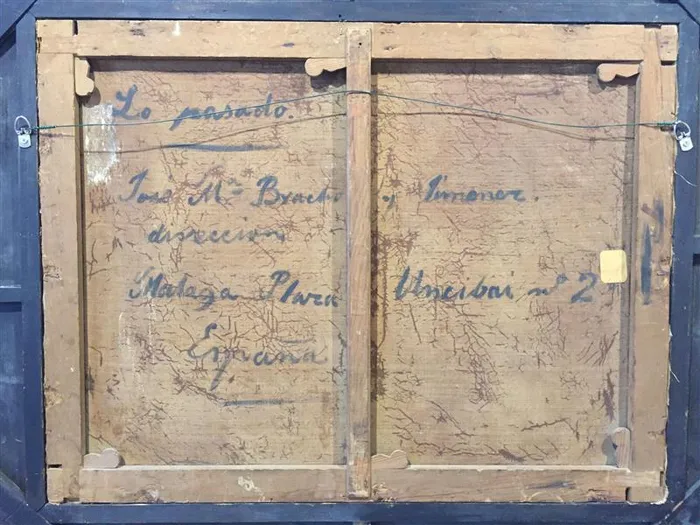 Lo pasado.
José Mª Bracho y Simonet.
direccion
Malaga Plaza Uncibai nº 2
España